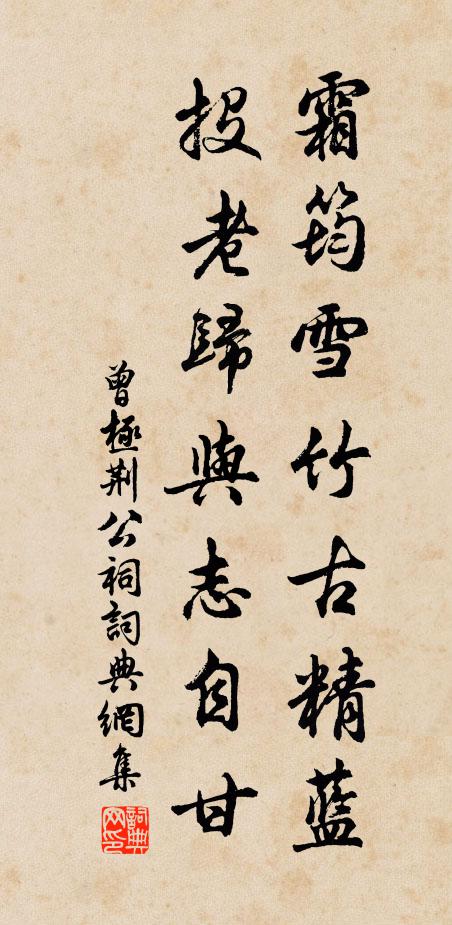 霜筠雪竹古精藍
投老歸與志自甘
曾極荆公祠詞典網集
詞典網印